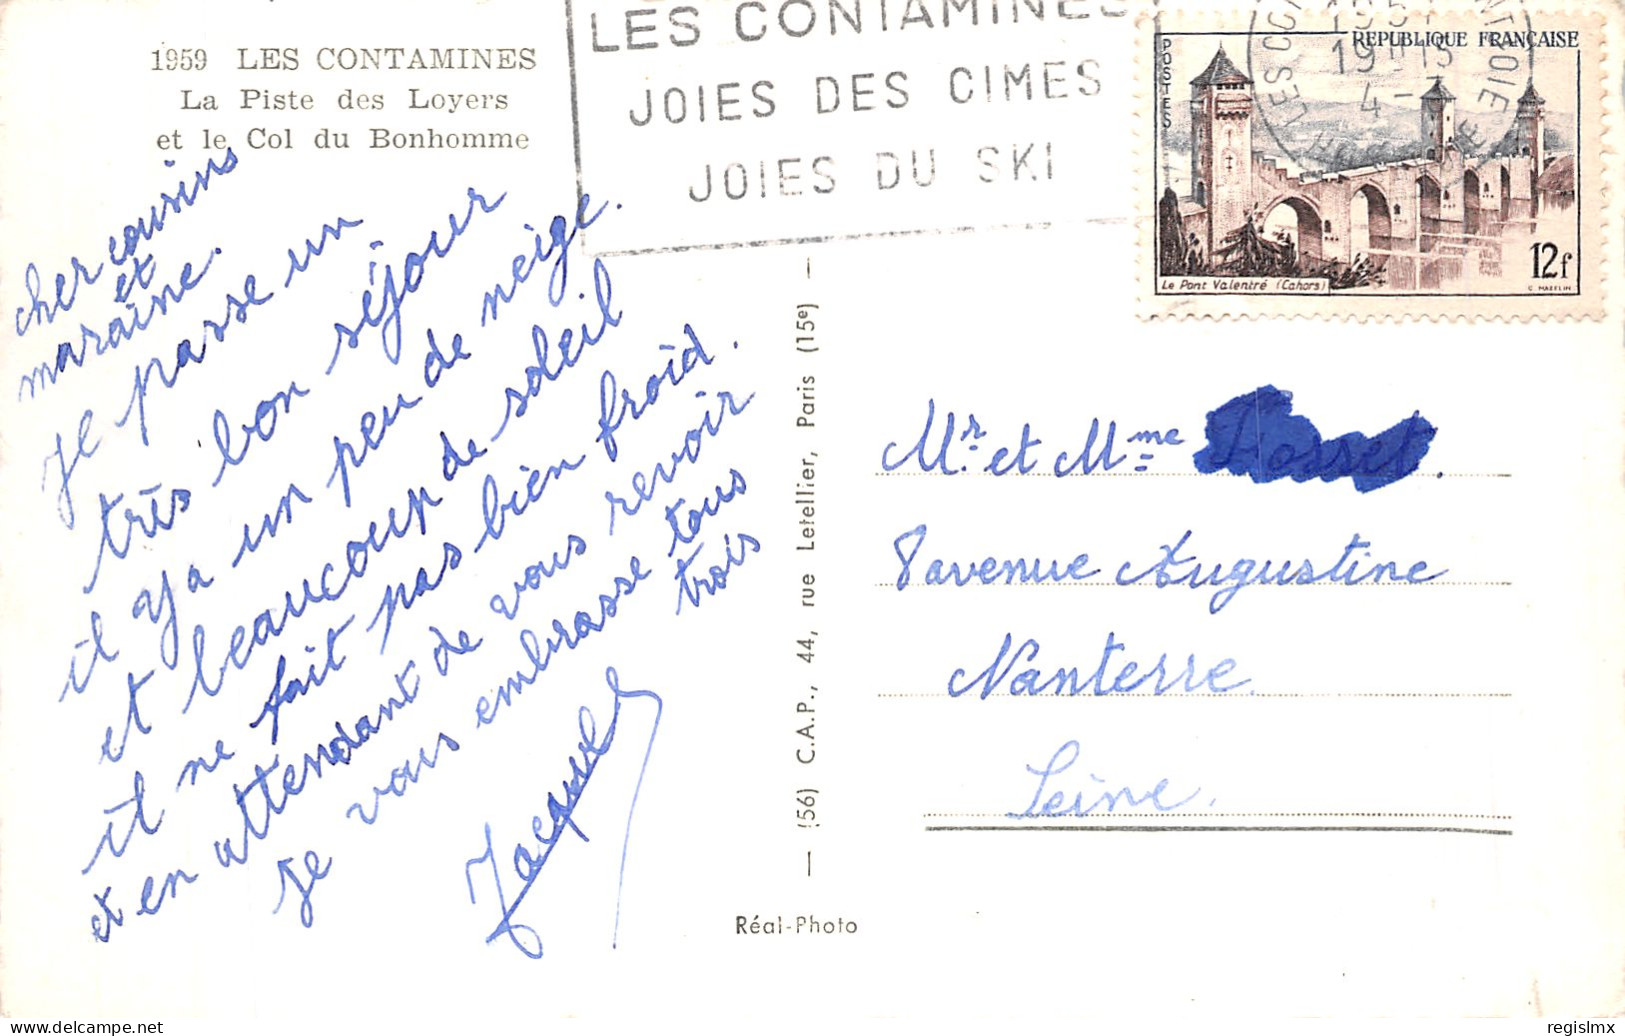 1959 LES CONTAMINES
La Piste des Loyers
et le Col du Bonhomme
cher cousins
et
maraine.
Je passe un
très bon séjour
il y a un peu de neige.
et beaucoup de soleil
il ne fait pas bien froid.
et en attendant de vous revoir
je vous embrasse tous
trois
LES CONTAMINES
JOIES DES CIMES
JOIES DU SKI
REPUBLIQUE FRANÇAISE
POSTES
Le Pont Valentré (Cahors)
12f
C. MAZELIN
Mr et Mme
8 avenue Augustine
Nanterre
Seine.
(56) C.A.P., 44, rue Letellier, Paris (15e)
Réal-Photo
delcampe.net
regislmx